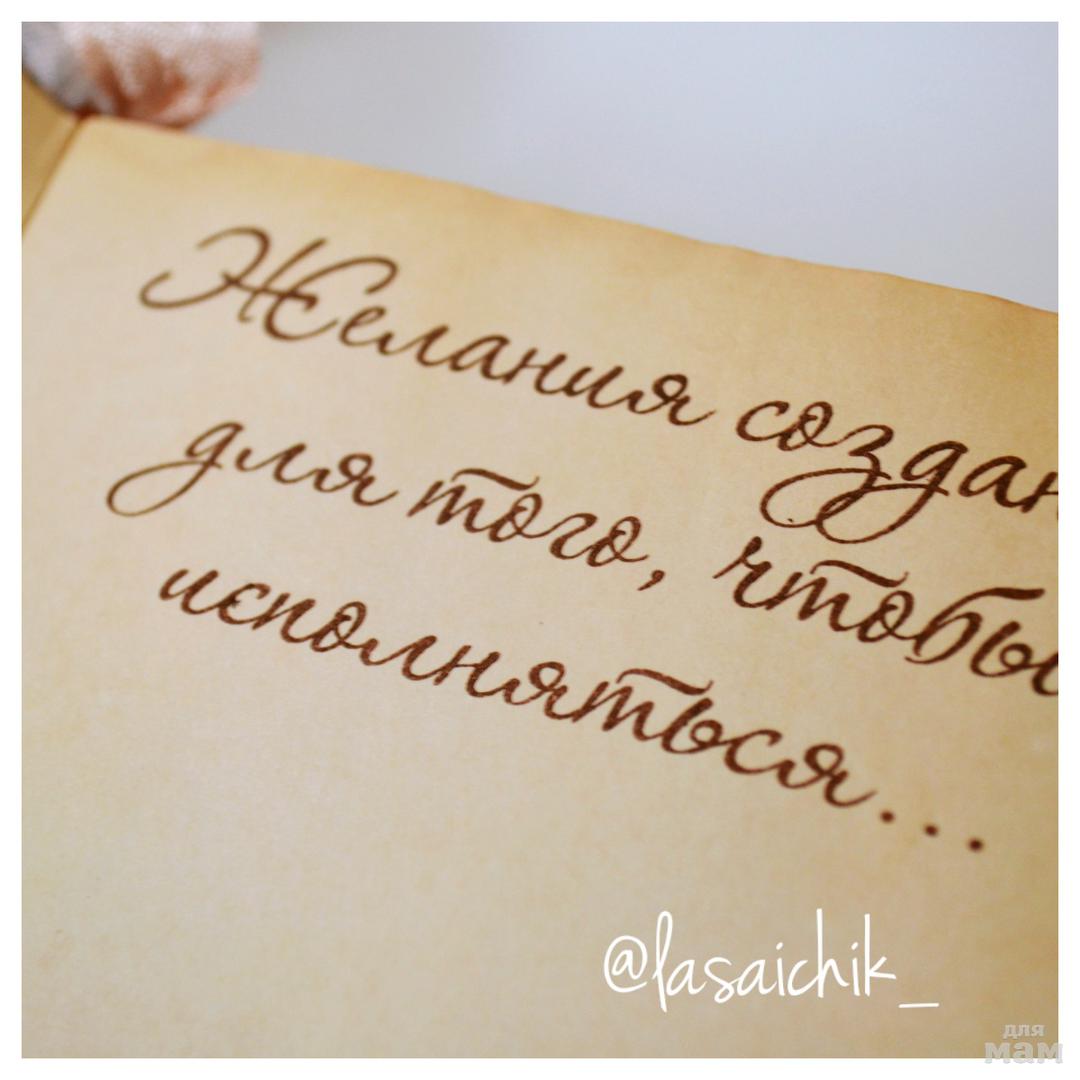 Желания создан
для того, чтобы
исполняться...
@lasaichik_
для
мам